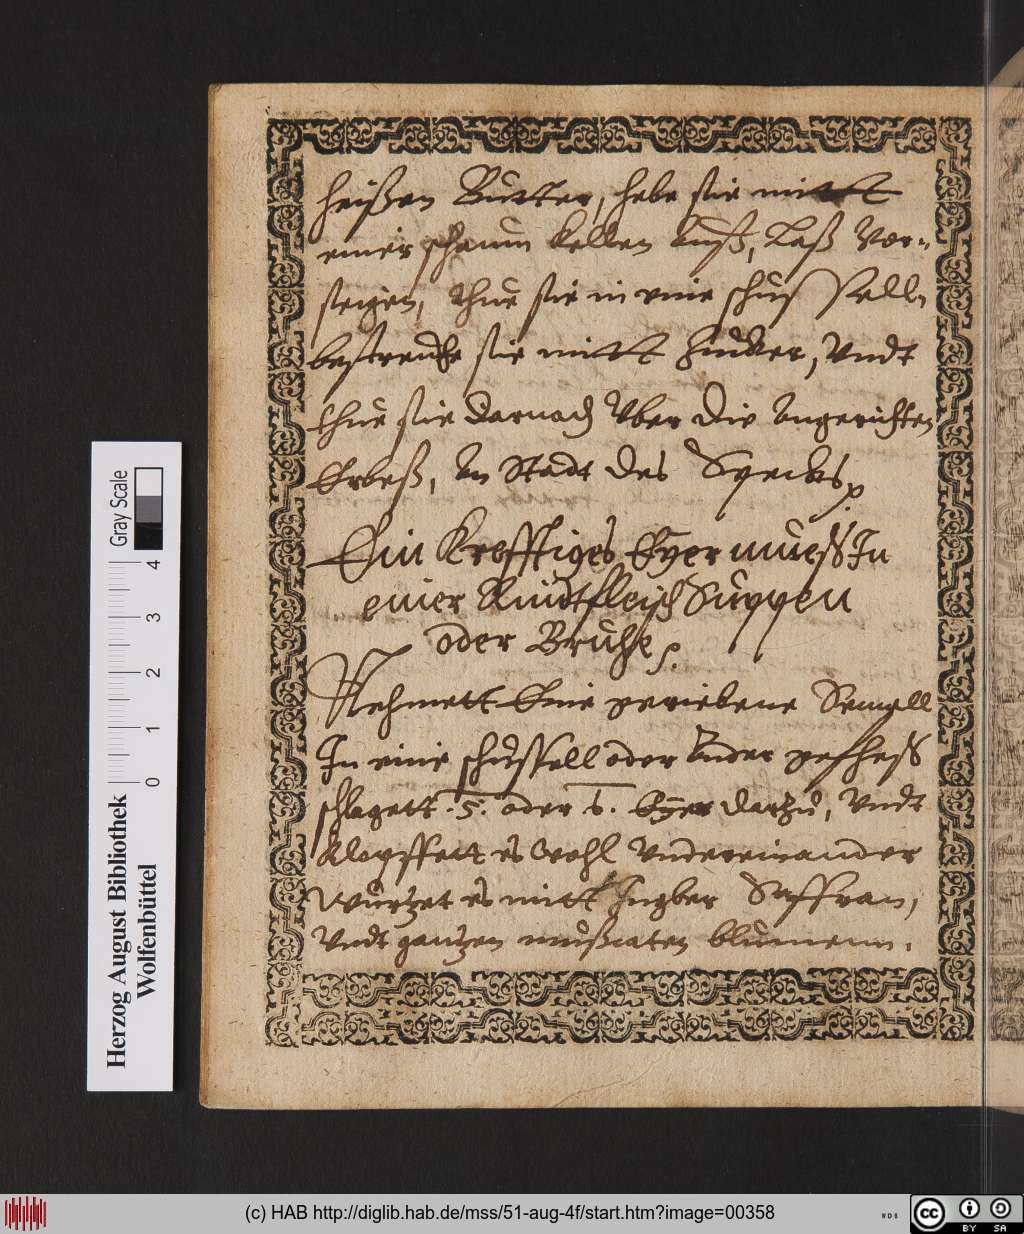 heißen Butter, hebe sie mitt
einer schaum kellen auß, laß Vor-
seigen, thue sie in eine schüssell
bestrewhe sie mitt Zucker, Vndt
thue sie darnach Vber die angerichten
Erbeß, An Stadt des Specks
Ein Krefftiges Eÿer mueß In
einer Rindtfleisch Suppen
oder Bruhe
Nehmett Eine geriebene Semell
In eine schüssell oder Ander gefheß
schlagett .5. oder 6. Eÿer darzu, Vndt
Klopffett es Wohl Vndereinander
Würtzet es mitt Ingber Saffran,
Vndt gantzen mußcaten blumenn.
Herzog August Bibliothek
Wolfenbüttel
Gray Scale
0 1 2 3 4
(c) HAB http://diglib.hab.de/mss/51-aug-4f/start.htm?image=00358
WDB
cc BY SA